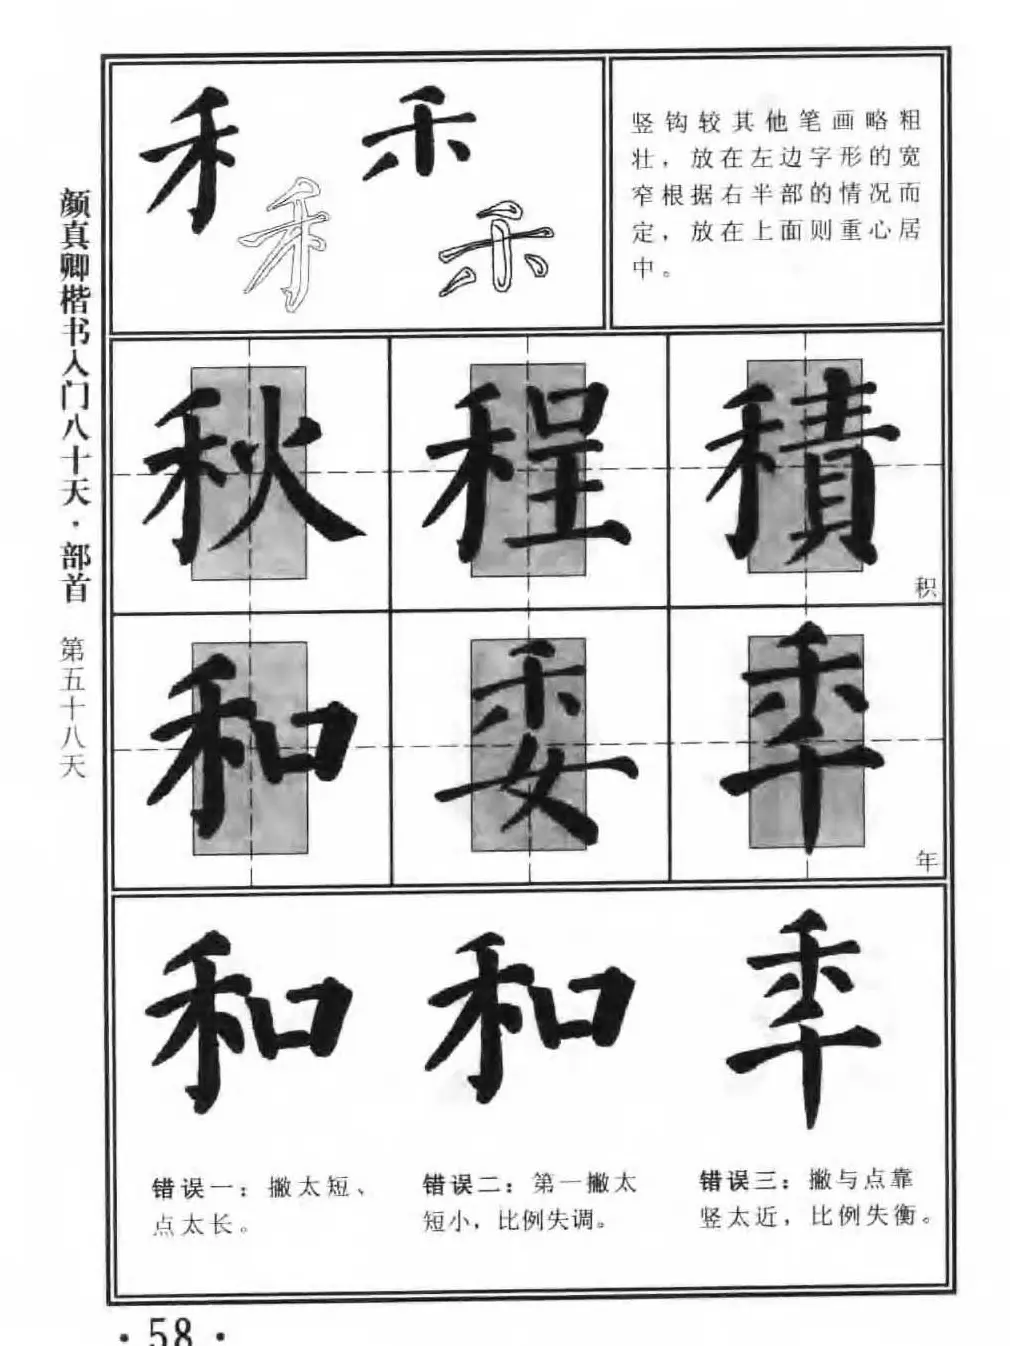 颜真卿楷书入门八十天·部首 第五十八天
禾 禾
禾 禾
竖钩较其他笔画略粗
壮，放在左边字形的宽
窄根据右半部的情况而
定，放在上面则重心居
中。
秋 程 積
积
和 委 秊
年
和 和 秊
错误一：撇太短、
点太长。
错误二：第一撇太
短小，比例失调。
错误三：撇与点靠
竖太近，比例失衡。
·58·